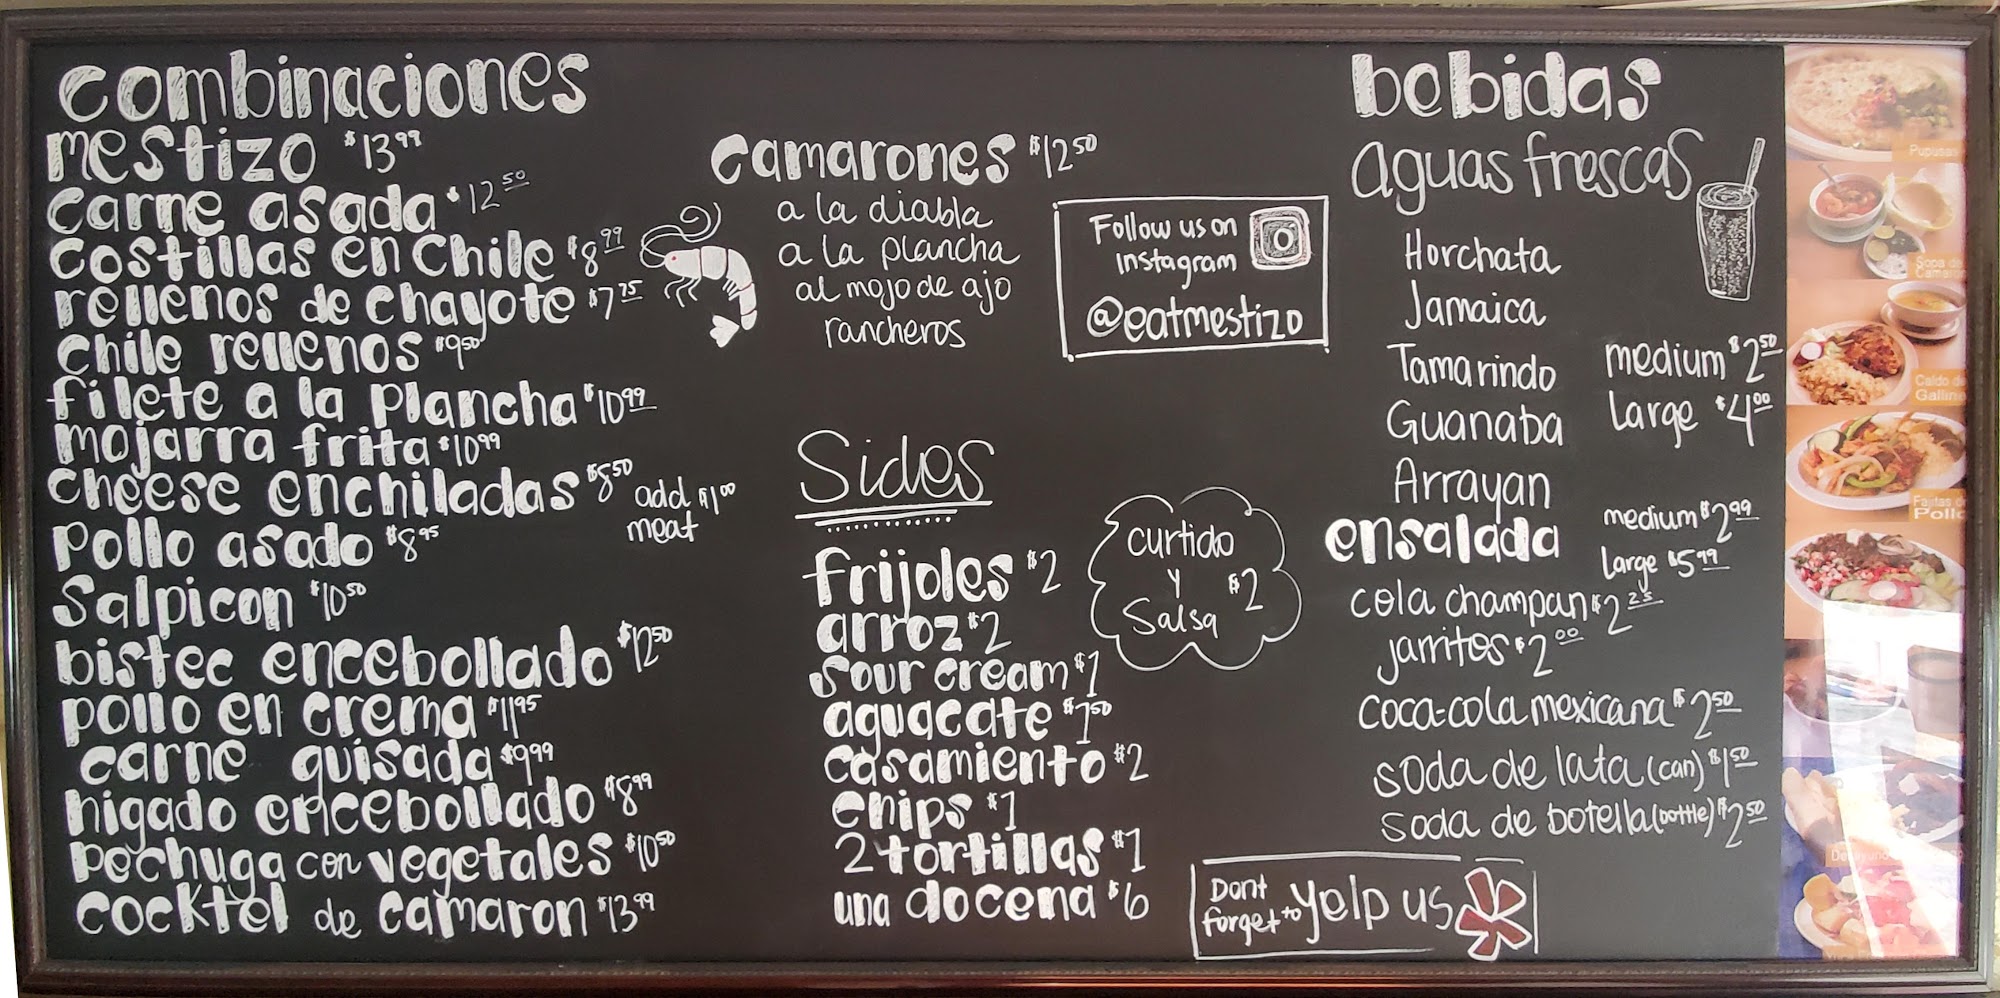 combinaciones
mestizo $13.99
carne asada $12.50
costillas en chile $8.99
rellenos de chayote $7.75
chile rellenos $9.50
filete a la plancha $10.99
mojarra frita $10.99
cheese enchiladas $8.50 add meat $1.00
pollo asado $8.95
Salpicon $10.50
bistec encebollado $12.50
pollo en crema $11.95
carne guisada $9.99
higado encebollado $8.99
pechuga con vegetales $10.50
cocktel de camaron $13.99
camarones $12.50
a la diabla
a la plancha
al mojo de ajo
rancheros
Follow us on
instagram
@eatmestizo
Sides
frijoles $2
arroz $2
sour cream $1
aguacate $1.50
casamiento $2
chips $1
2 tortillas $1
una docena $6
curtido
y
Salsa $2
bebidas
aguas frescas
Horchata
Jamaica
Tamarindo
Guanaba
Arrayan
medium $2.50
large $4.00
ensalada
medium $2.99
large $5.99
cola champan $2.25
jarritos $2.00
coca-cola mexicana $2.50
soda de lata (can) $1.50
soda de botella (bottle) $2.50
Dont
forget to yelp us
Pupusas
Sopa de
Camaron
Caldo de
Gallina
Fajitas de
Pollo